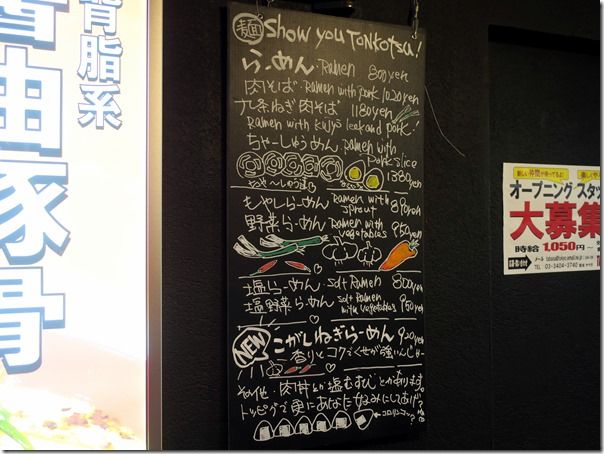 背脂系
醤油豚骨
麺 Show you TONKOTSU!
らーめん・Ramen 800yen
肉そば・Ramen with pork 1020yen
九条ねぎ肉そば 1180yen
Ramen with kujyo leak and pork!
ちゃーしゅうめん・Ramen with
pork slice
1380yen
もやしらーめん Ramen with sprout 890yen
野菜らーめん Ramen with vegetables 950yen
塩らーめん・Salt Ramen 800yen
塩野菜らーめん Salt Ramen with vegetables 950yen
NEW こがしねぎらーめん 920yen
香りとコクでくせが強いんじゃー
その他・肉丼とか塩むすびとかあります
トッピングで更にあなた好みにしてあげて
オープニング スタッ
大募集
時給 1,050円~
TEL 03-3424-3740